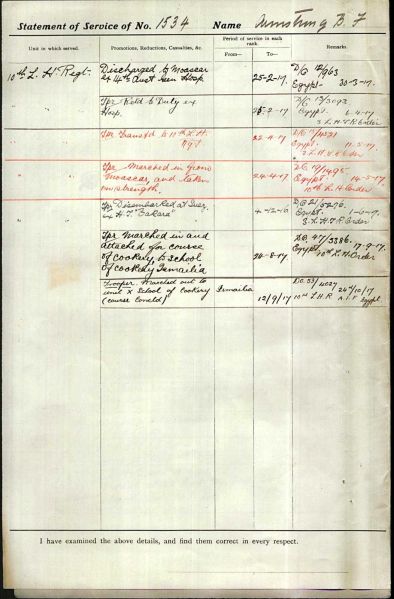 Statement of Service of No. 1534 Name Armstrong B F
Unit in which served.
Promotions, Reductions, Casualties, &c.
Period of service in each rank.
From—
To—
Remarks.
10th L. H. Regt.
Discharged to Moascar
ex 14th Aust Gen Hosp
25-2-17
D/O 12/963
Egypt 30-3-17.
"
Tpr Retd to Duty ex
Hosp.
25-2-17
6-4-17
3 L.H.T.R Order
"
Tpr Transfd to 10th L.H.
Rgt
22-4-17
Egypt. 11-5-17
3 L.H.T.R Order
"
Tpr Marched in from
Moascar, and taken
on strength.
24-4-17
D.O. 19/1495
Egypt 14-5-17
10th L.H. Order
"
Tpr Disembarked at Suez
ex H.T. "Eakara"
4-12-16
D.O. 21/5296.
Egypt. 1-6-17.
3.L.H.T.R Order
Tpr Marched in and
detached for course
of cookery to School
of cookery Ismailia
24-8-17
D.O. 47/3386.
Egypt 17-9-17.
10th L.H. Order
Trooper Marched out to
unit x School of Cookery
(course Concld)
Ismailia
12/9/17
D.O. 53/4027
10th L.H.R A.I.F Egypt
24/10/17
I have examined the above details, and find them correct in every respect.